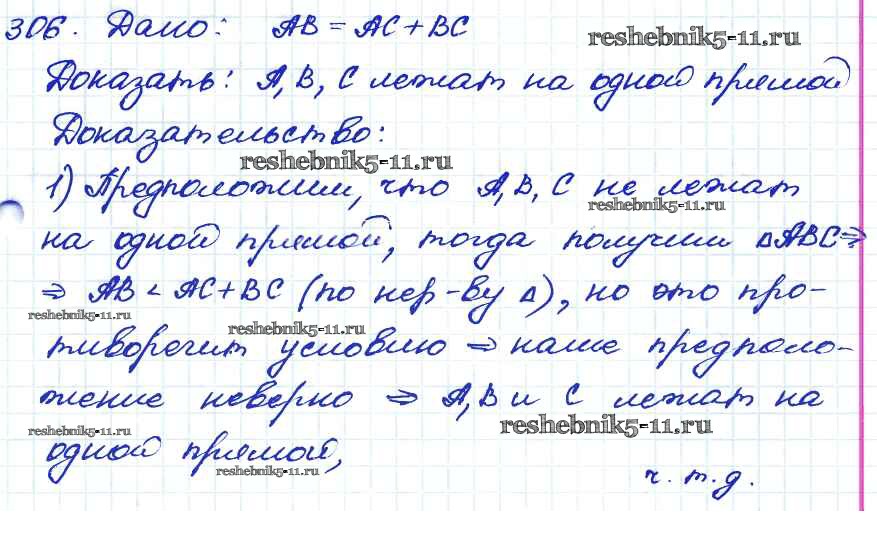 306. Дано: AB = AC + BC
reshebnik5-11.ru
Доказать: A, B, C лежат на одной прямой
Доказательство:
reshebnik5-11.ru
1) Предположим, что A, B, C не лежат
reshebnik5-11.ru
на одной прямой, тогда получим △ABC ⇒
⇒ AB < AC + BC (по нер-ву △), но это про-
reshebnik5-11.ru
reshebnik5-11.ru
тиворечит условию ⇒ наше предполо-
жение неверно ⇒ A, B и C лежат на
reshebnik5-11.ru
reshebnik5-11.ru
одной прямой,
reshebnik5-11.ru
ч. т. д.